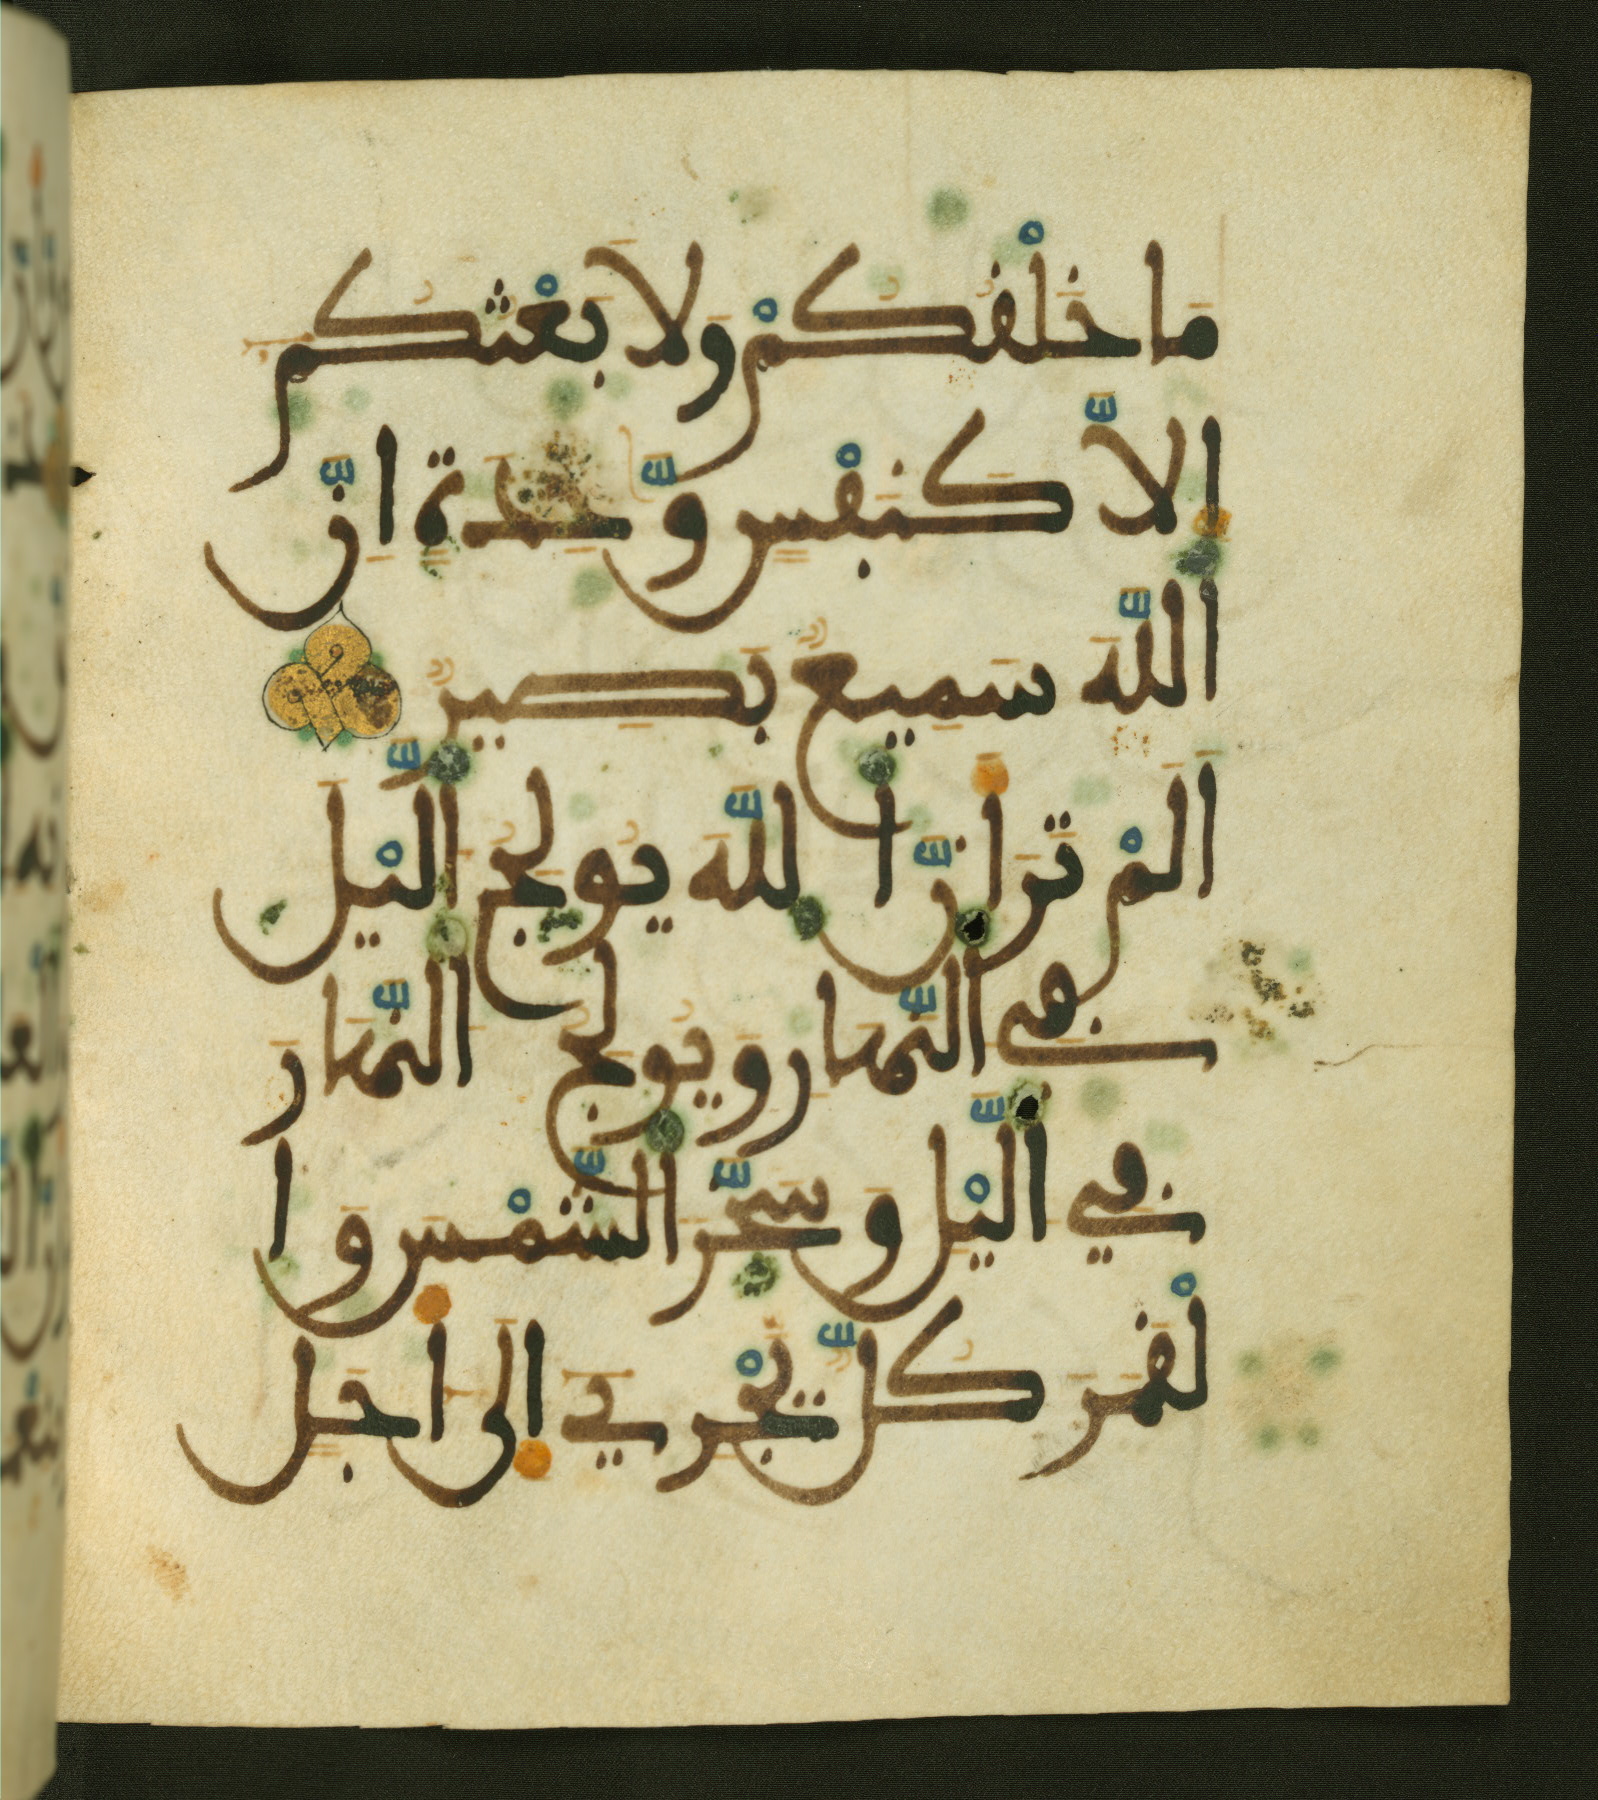 مَا خَلْفُكُمْ وَلَا بَعْثُكُمُ
إِلَّا كَنَفْسٍ وَّحِدَةٍ إِنَّ
اللَّهَ سَمِيعٌ بَصِيرٌ
أَلَمْ تَرَ أَنَّ اللَّهَ يُولِجُ الَّيْلَ
فِي النَّهَارِ وَيُولِجُ النَّهَارَ
فِي الَّيْلِ وَسَخَّرَ الشَّمْسَ وَا
لْقَمَرَ كُلٌّ يَّجْرِي إِلَى أَجَلٍ